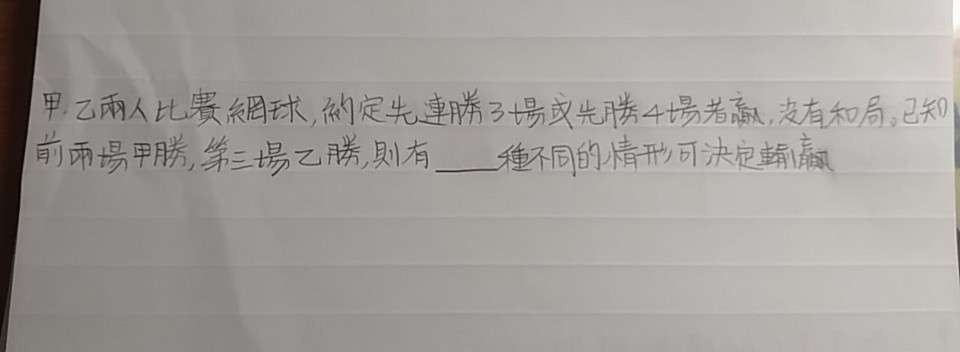 甲.乙兩人比賽網球,約定先連勝3場或先勝4場者贏,沒有和局。已知
前兩場甲勝,第三場乙勝,則有____種不同的情形可決定輸贏